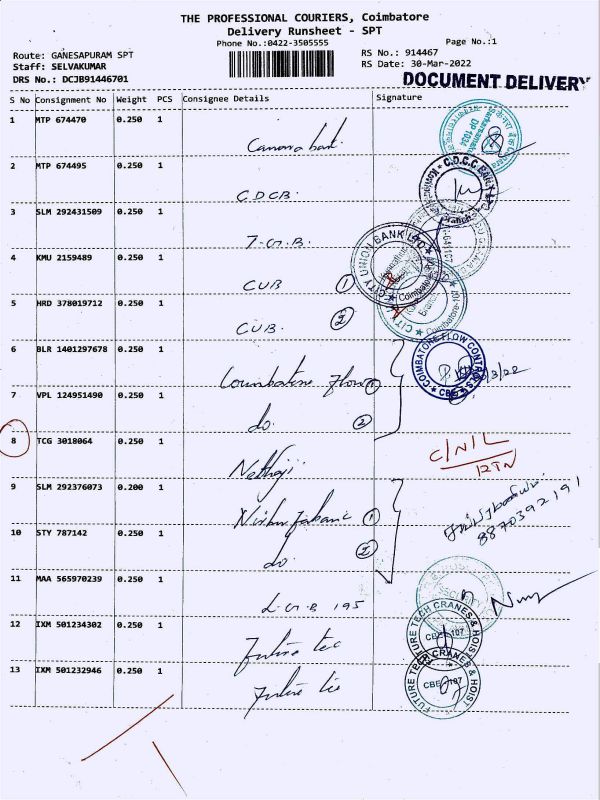 THE PROFESSIONAL COURIERS, Coimbatore
Delivery Runsheet - SPT
Phone No.:0422-3505555
Page No.:1
Route: GANESAPURAM SPT
RS No.: 914467
Staff: SELVAKUMAR
RS Date: 30-Mar-2022
DRS No.: DCJB91446701
DOCUMENT DELIVERY
S No Consignment No Weight PCS Consignee Details Signature
1 MTP 674470 0.250 1
Canara bank
2 MTP 674495 0.250 1
CDCB
3 SLM 292431509 0.250 1
4 KMU 2159489 0.250 1
CITY UNION BANK LTD
CUB 1
5 HRD 378019712 0.250 1
CUB. 2
6 BLR 1401297678 0.250 1
COIMBATORE FLOW CONTROLS
Coimbatore Flow 1
7 VPL 124951490 0.250 1
do. 2
8 TCG 3018064 0.250 1
C/N/L
RTN
Nethaji
9 SLM 292376073 0.200 1
8870392191
1
10 STY 787142 0.250 1
do. 2
11 MAA 565970239 0.250 1
195
12 IXM 501234302 0.250 1
FUTURE TECH CRANES & HOIST
Future tec
13 IXM 501232946 0.250 1
FUTURE TECH CRANES & HOIST
Future tec